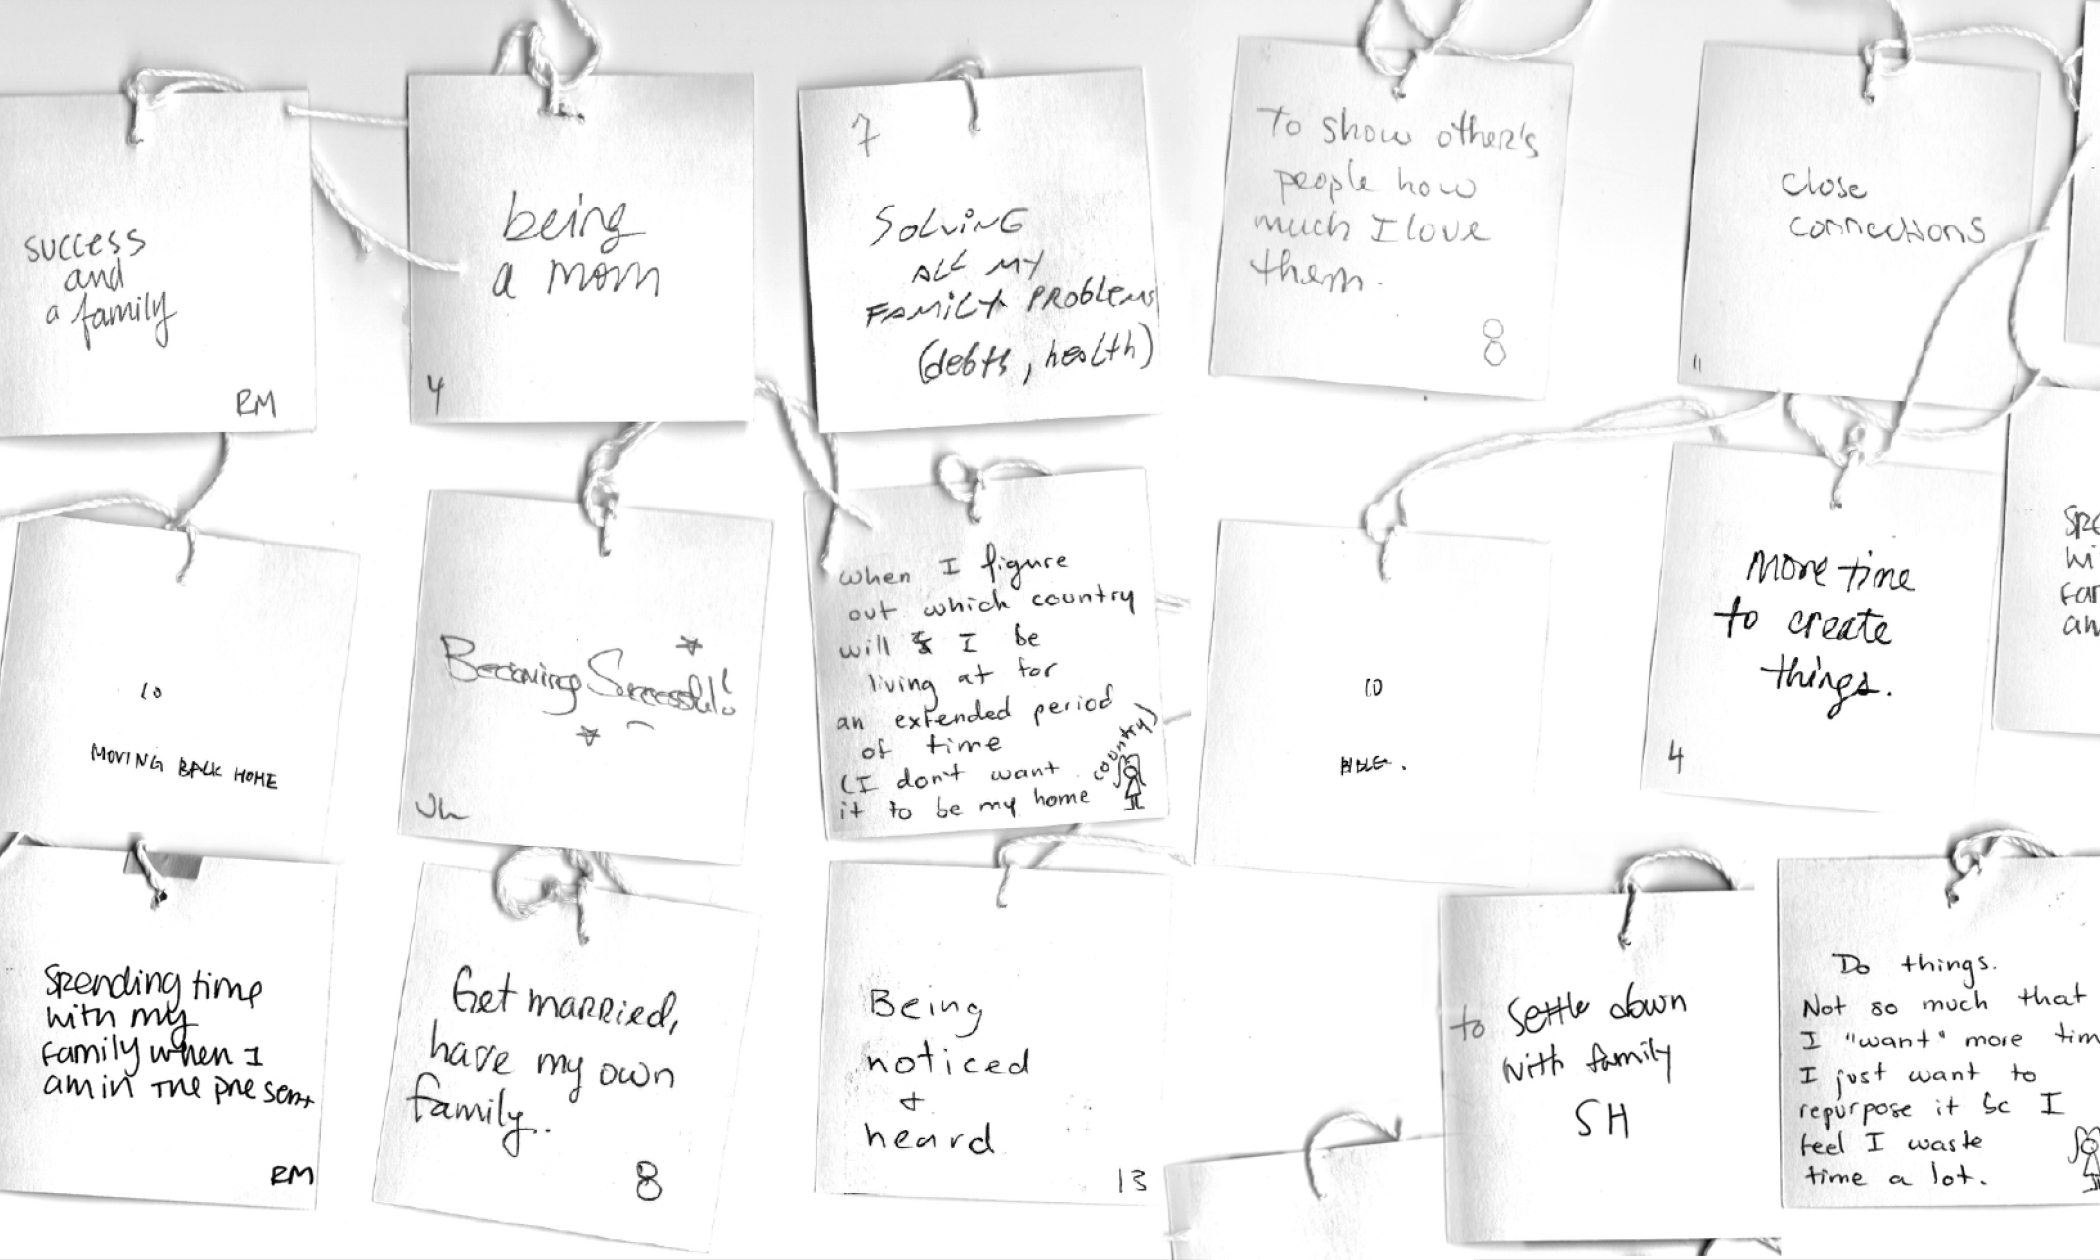 success
and
a family
RM
being
a mom
4
7
SOLVING
ALL MY
FAMILY PROBLEMS
(debts, health)
To show other's
people how
much I love
them.
8
close
connections
11
10
MOVING BACK HOME
Becoming Successful!
Jh
when I figure
out which country
will I be
living at for
an extended period
of time
(I don't want
it to be my home
country)
10
More time
to create
things.
4
Spe
wi
far
an
Spending time
with my
family when I
am in the present
RM
Get married,
have my own
family..
8
Being
noticed
+
heard
13
to settle down
with family
SH
Do things.
Not so much that
I "want" more tim
I just want to
repurpose it bc I
feel I waste
time a lot.